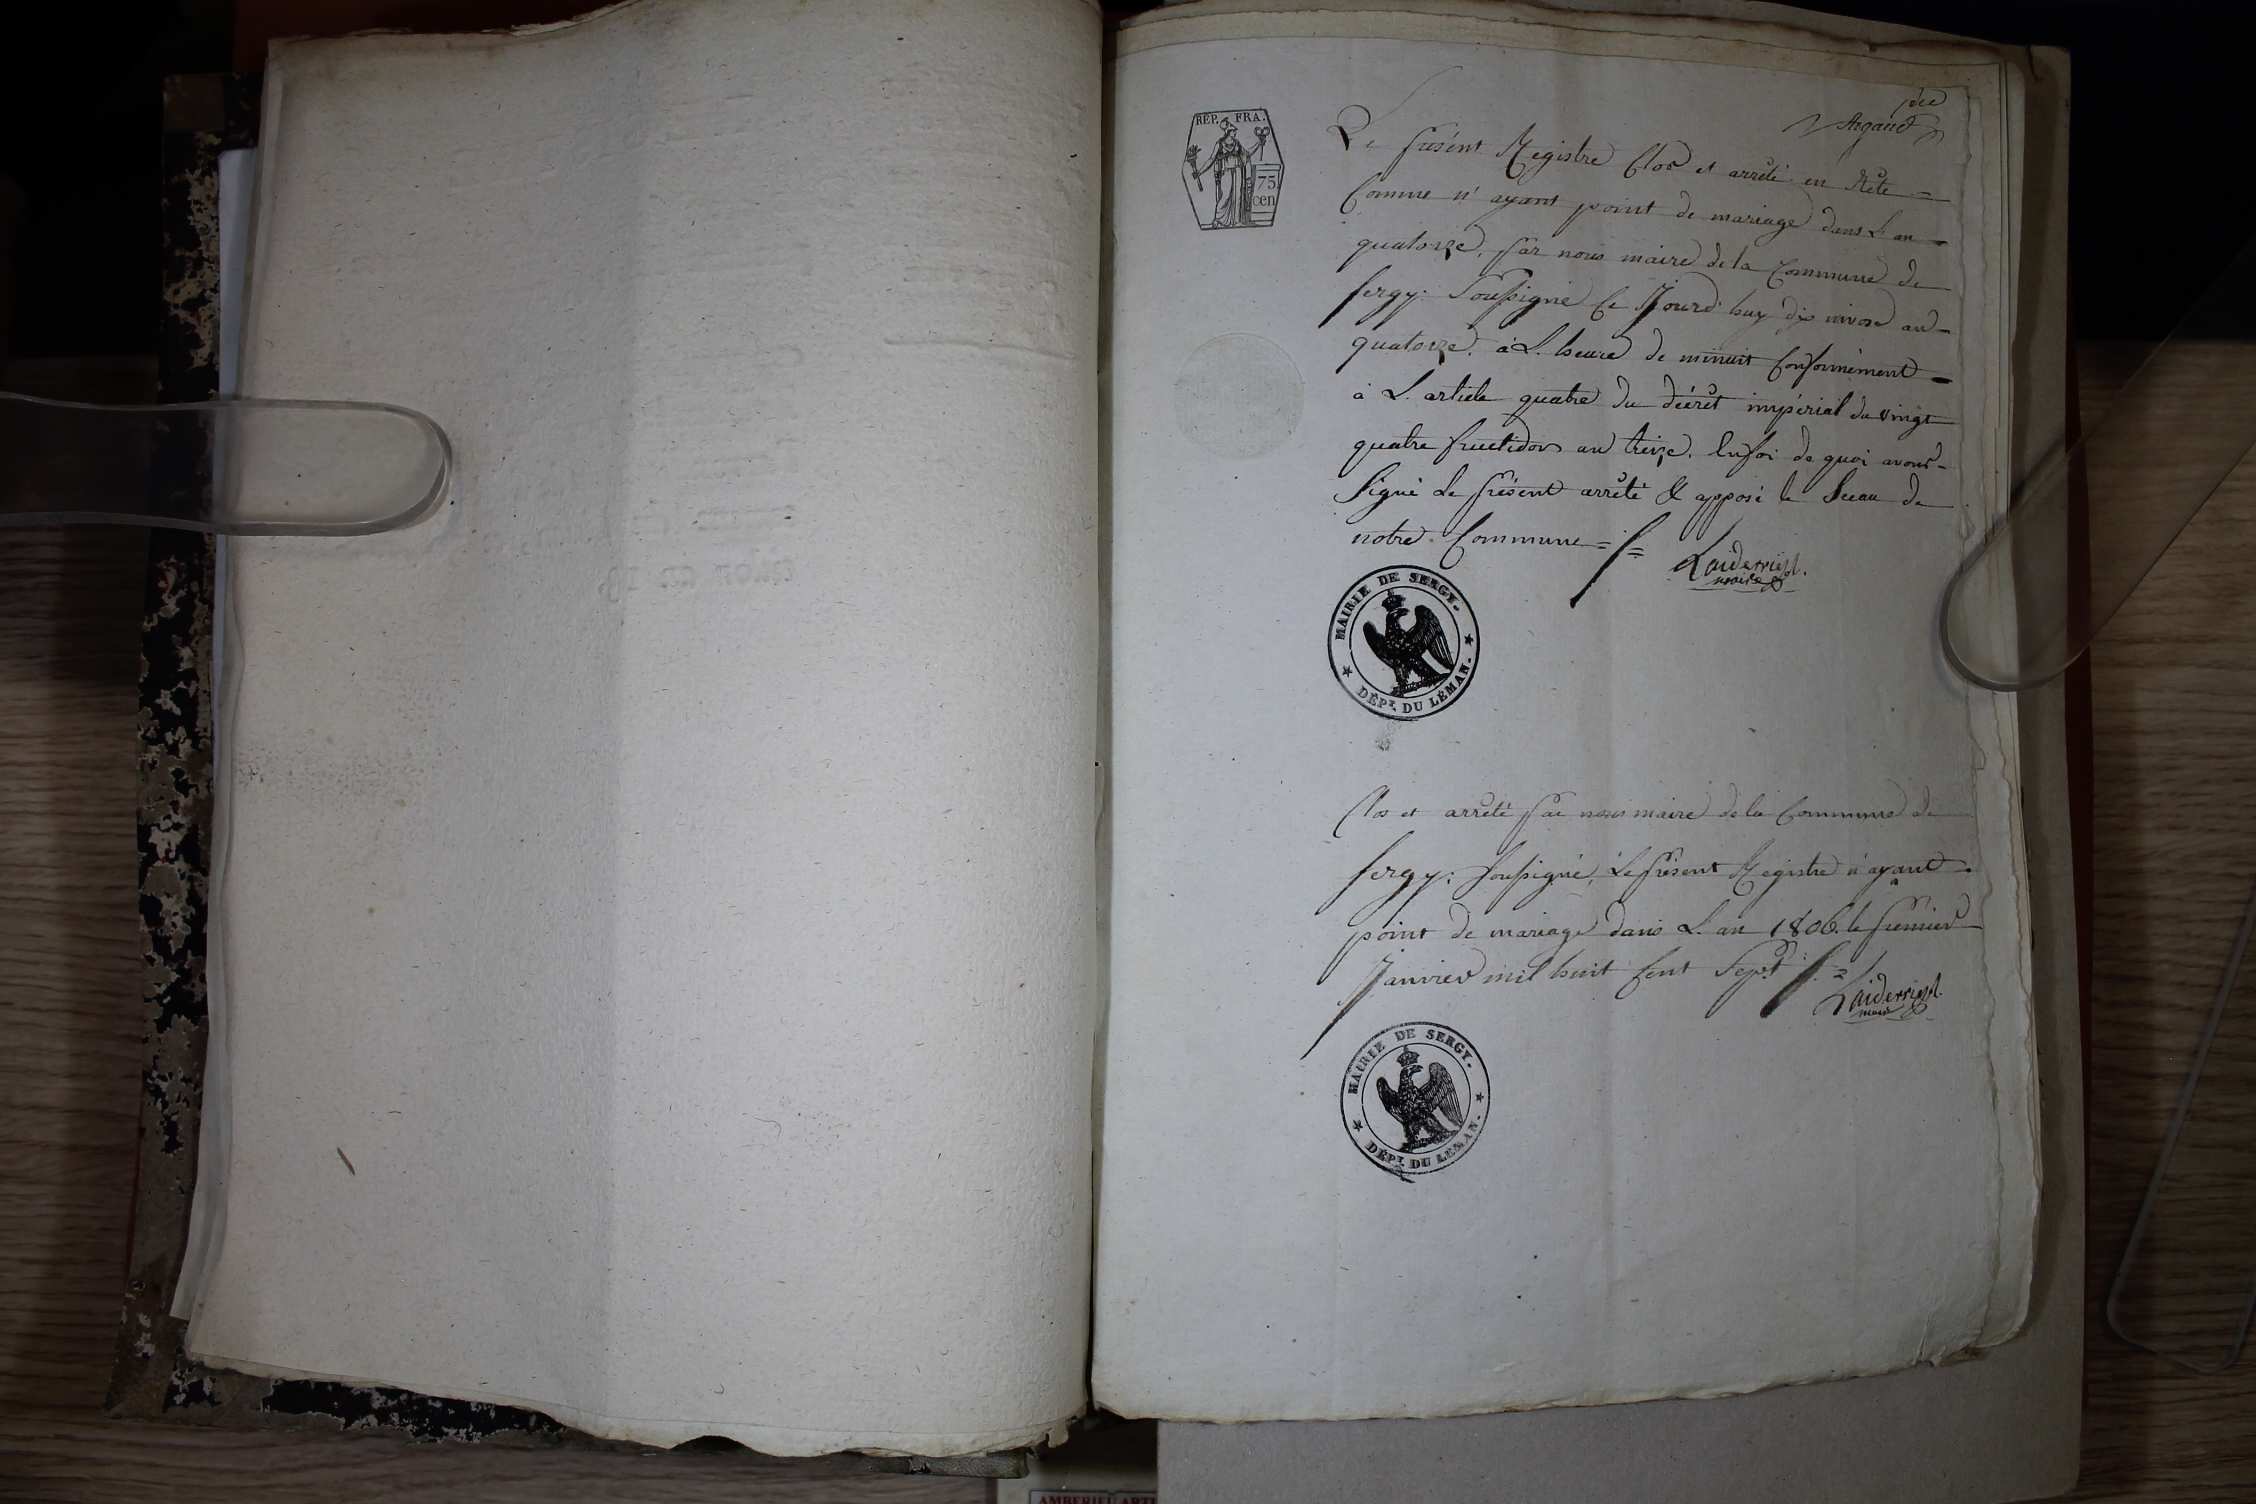 REP. FRA.
75
cen
Argaud
Le présent Registre Clos et arrêté en Tête
Comme n'ayant point de mariage dans L'an
quatorze, par nous maire de la Commune de
Sergy: Soussigné Ce Jourd'huy dix nivose an
quatorze. à L'heure de minuit Conformément
à L'article quatre du décret impérial du vingt
quatre fructidor an treize. En foi de quoi avons
Signé Le présent arrêté & apposé le Sceau de
notre Commune
maire
MAIRIE DE SERGY.
DÉPT. DU LÉMAN.
Clos et arrêté par nous maire de la Commune de
Sergy: Soussigné, Le présent Registre n'ayant
point de mariage dans L'an 1806. le premier
Janvier mil huit Cent Sept
maire
MAIRIE DE SERGY.
DÉPT. DU LÉMAN.